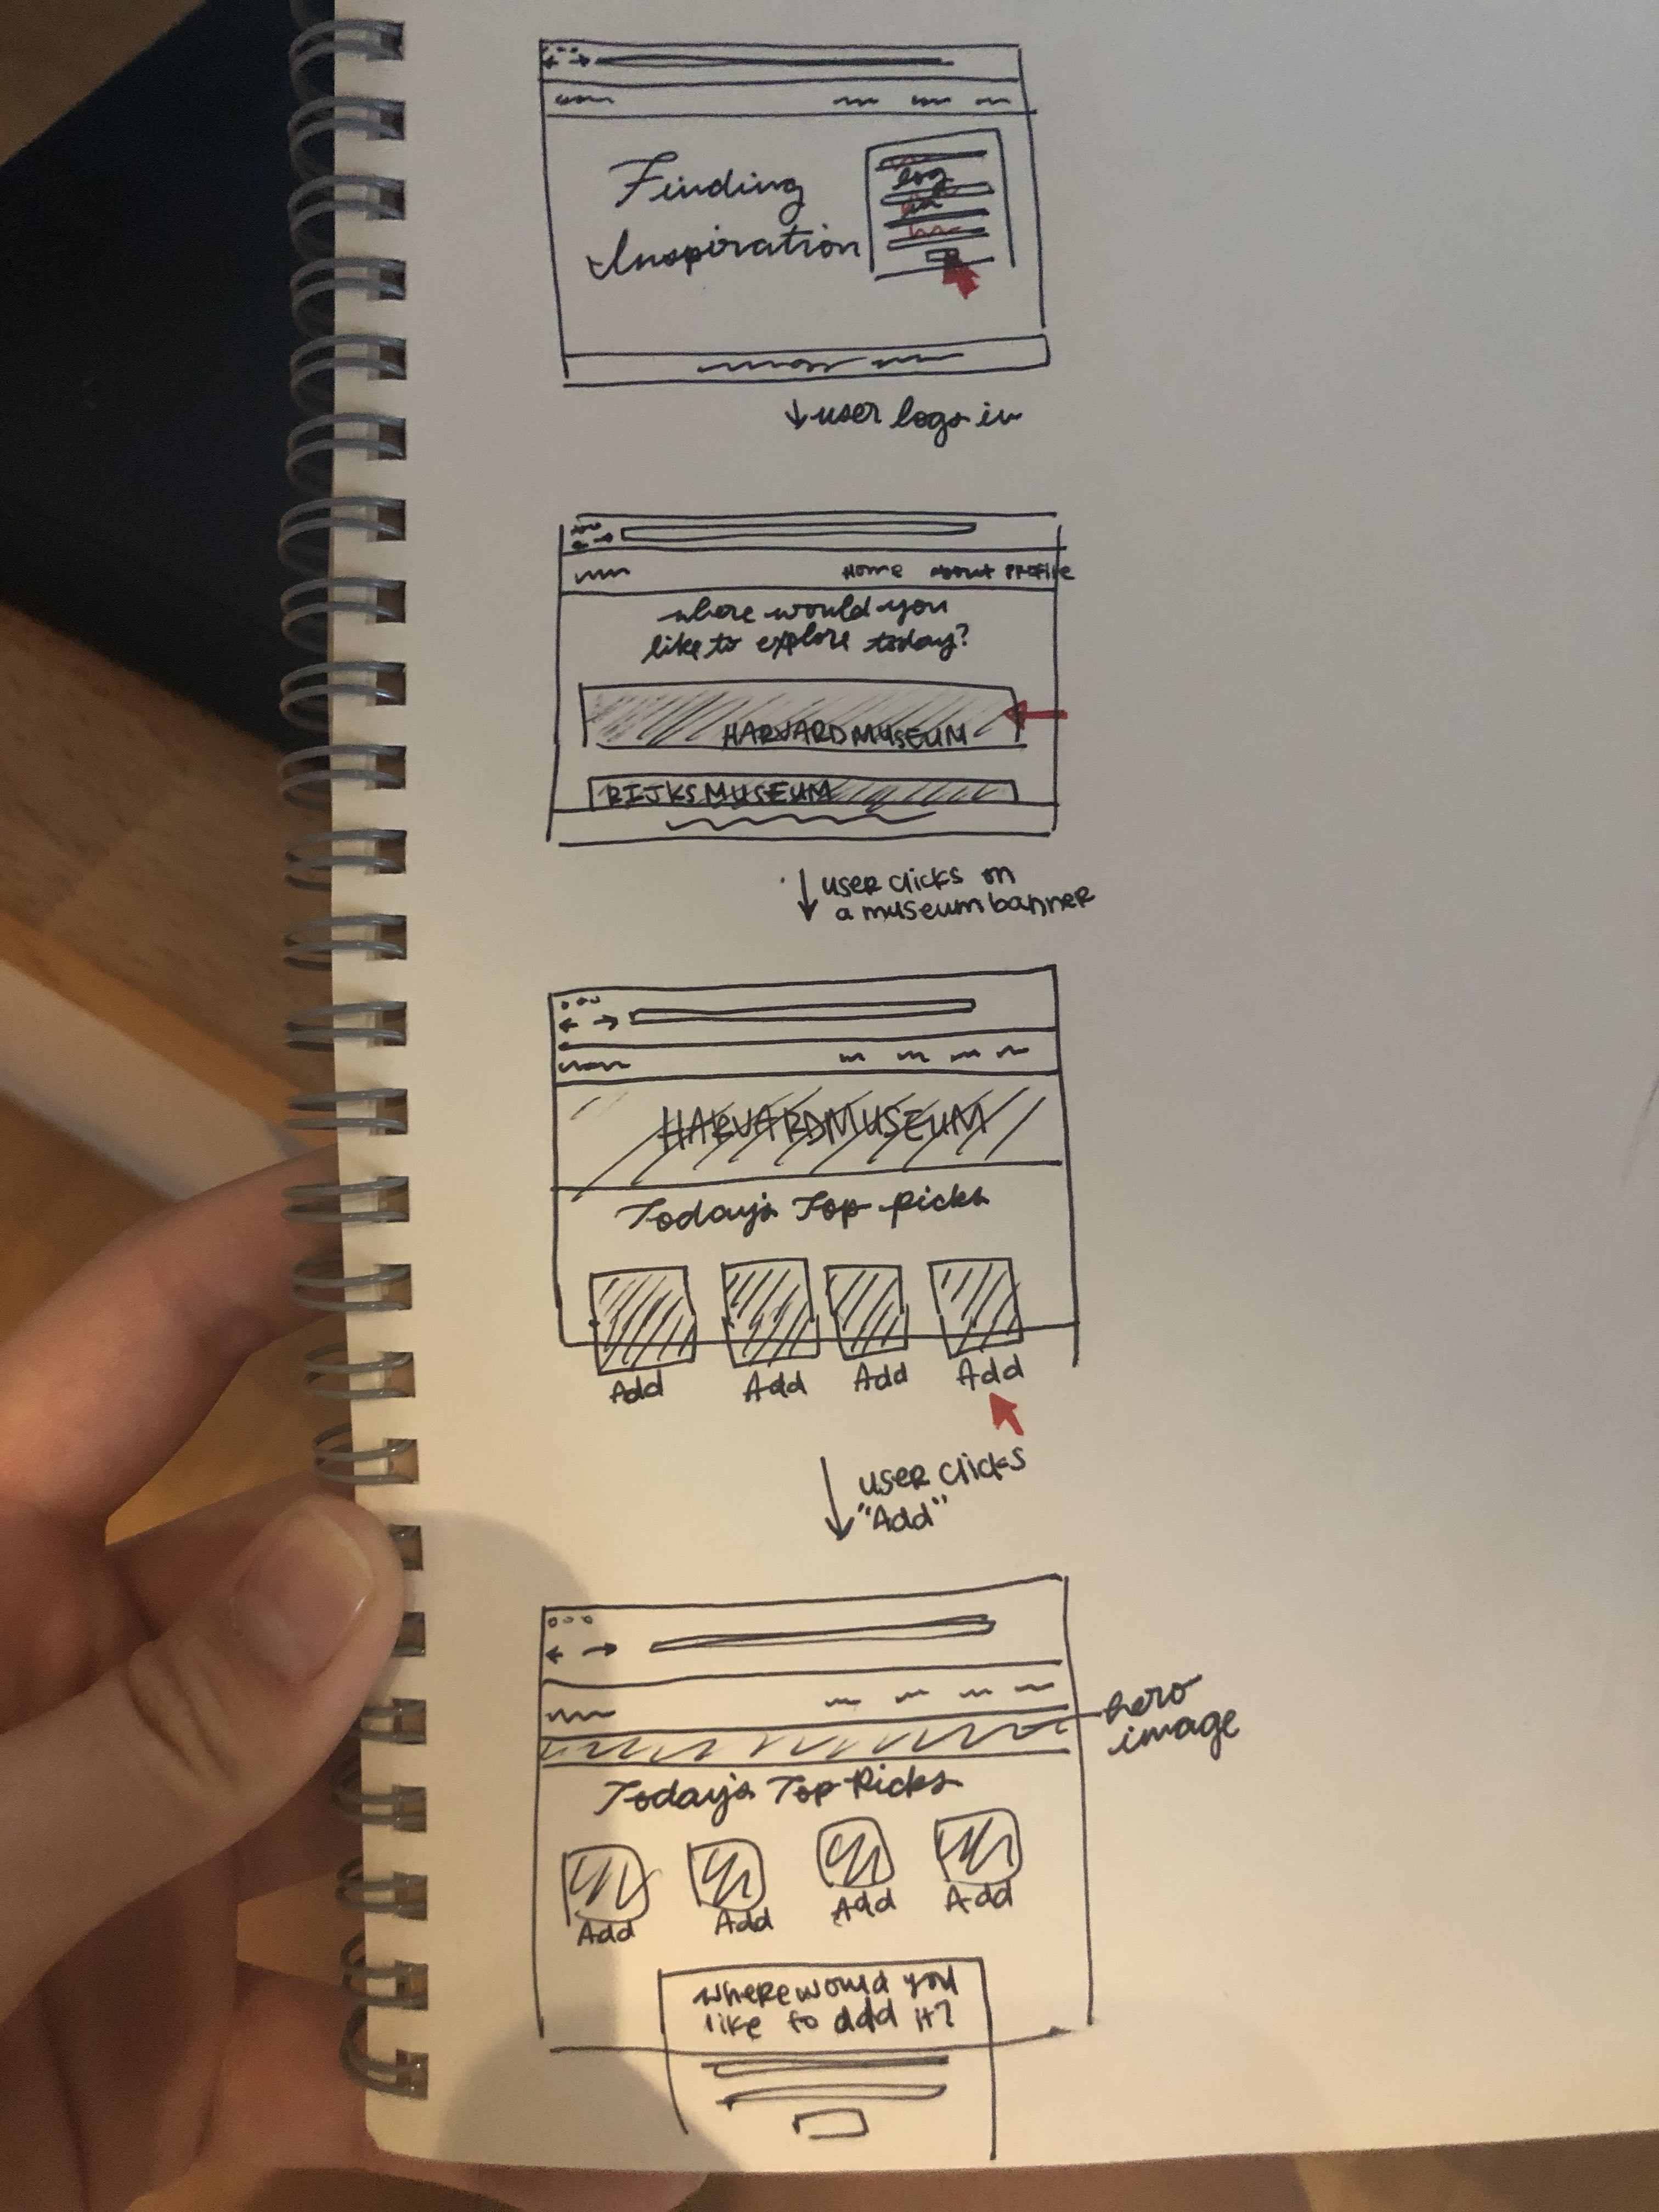 Finding
Inspiration
log
in
user logs in
Home About Profile
where would you
like to explore today?
HARVARD MUSEUM
RIJKSMUSEUM
user clicks on
a museum banner
HARVARD MUSEUM
Today's Top Picks
Add Add Add Add
user clicks
"Add"
hero
image
Today's Top Picks
Add Add Add Add
where would you
like to add it?